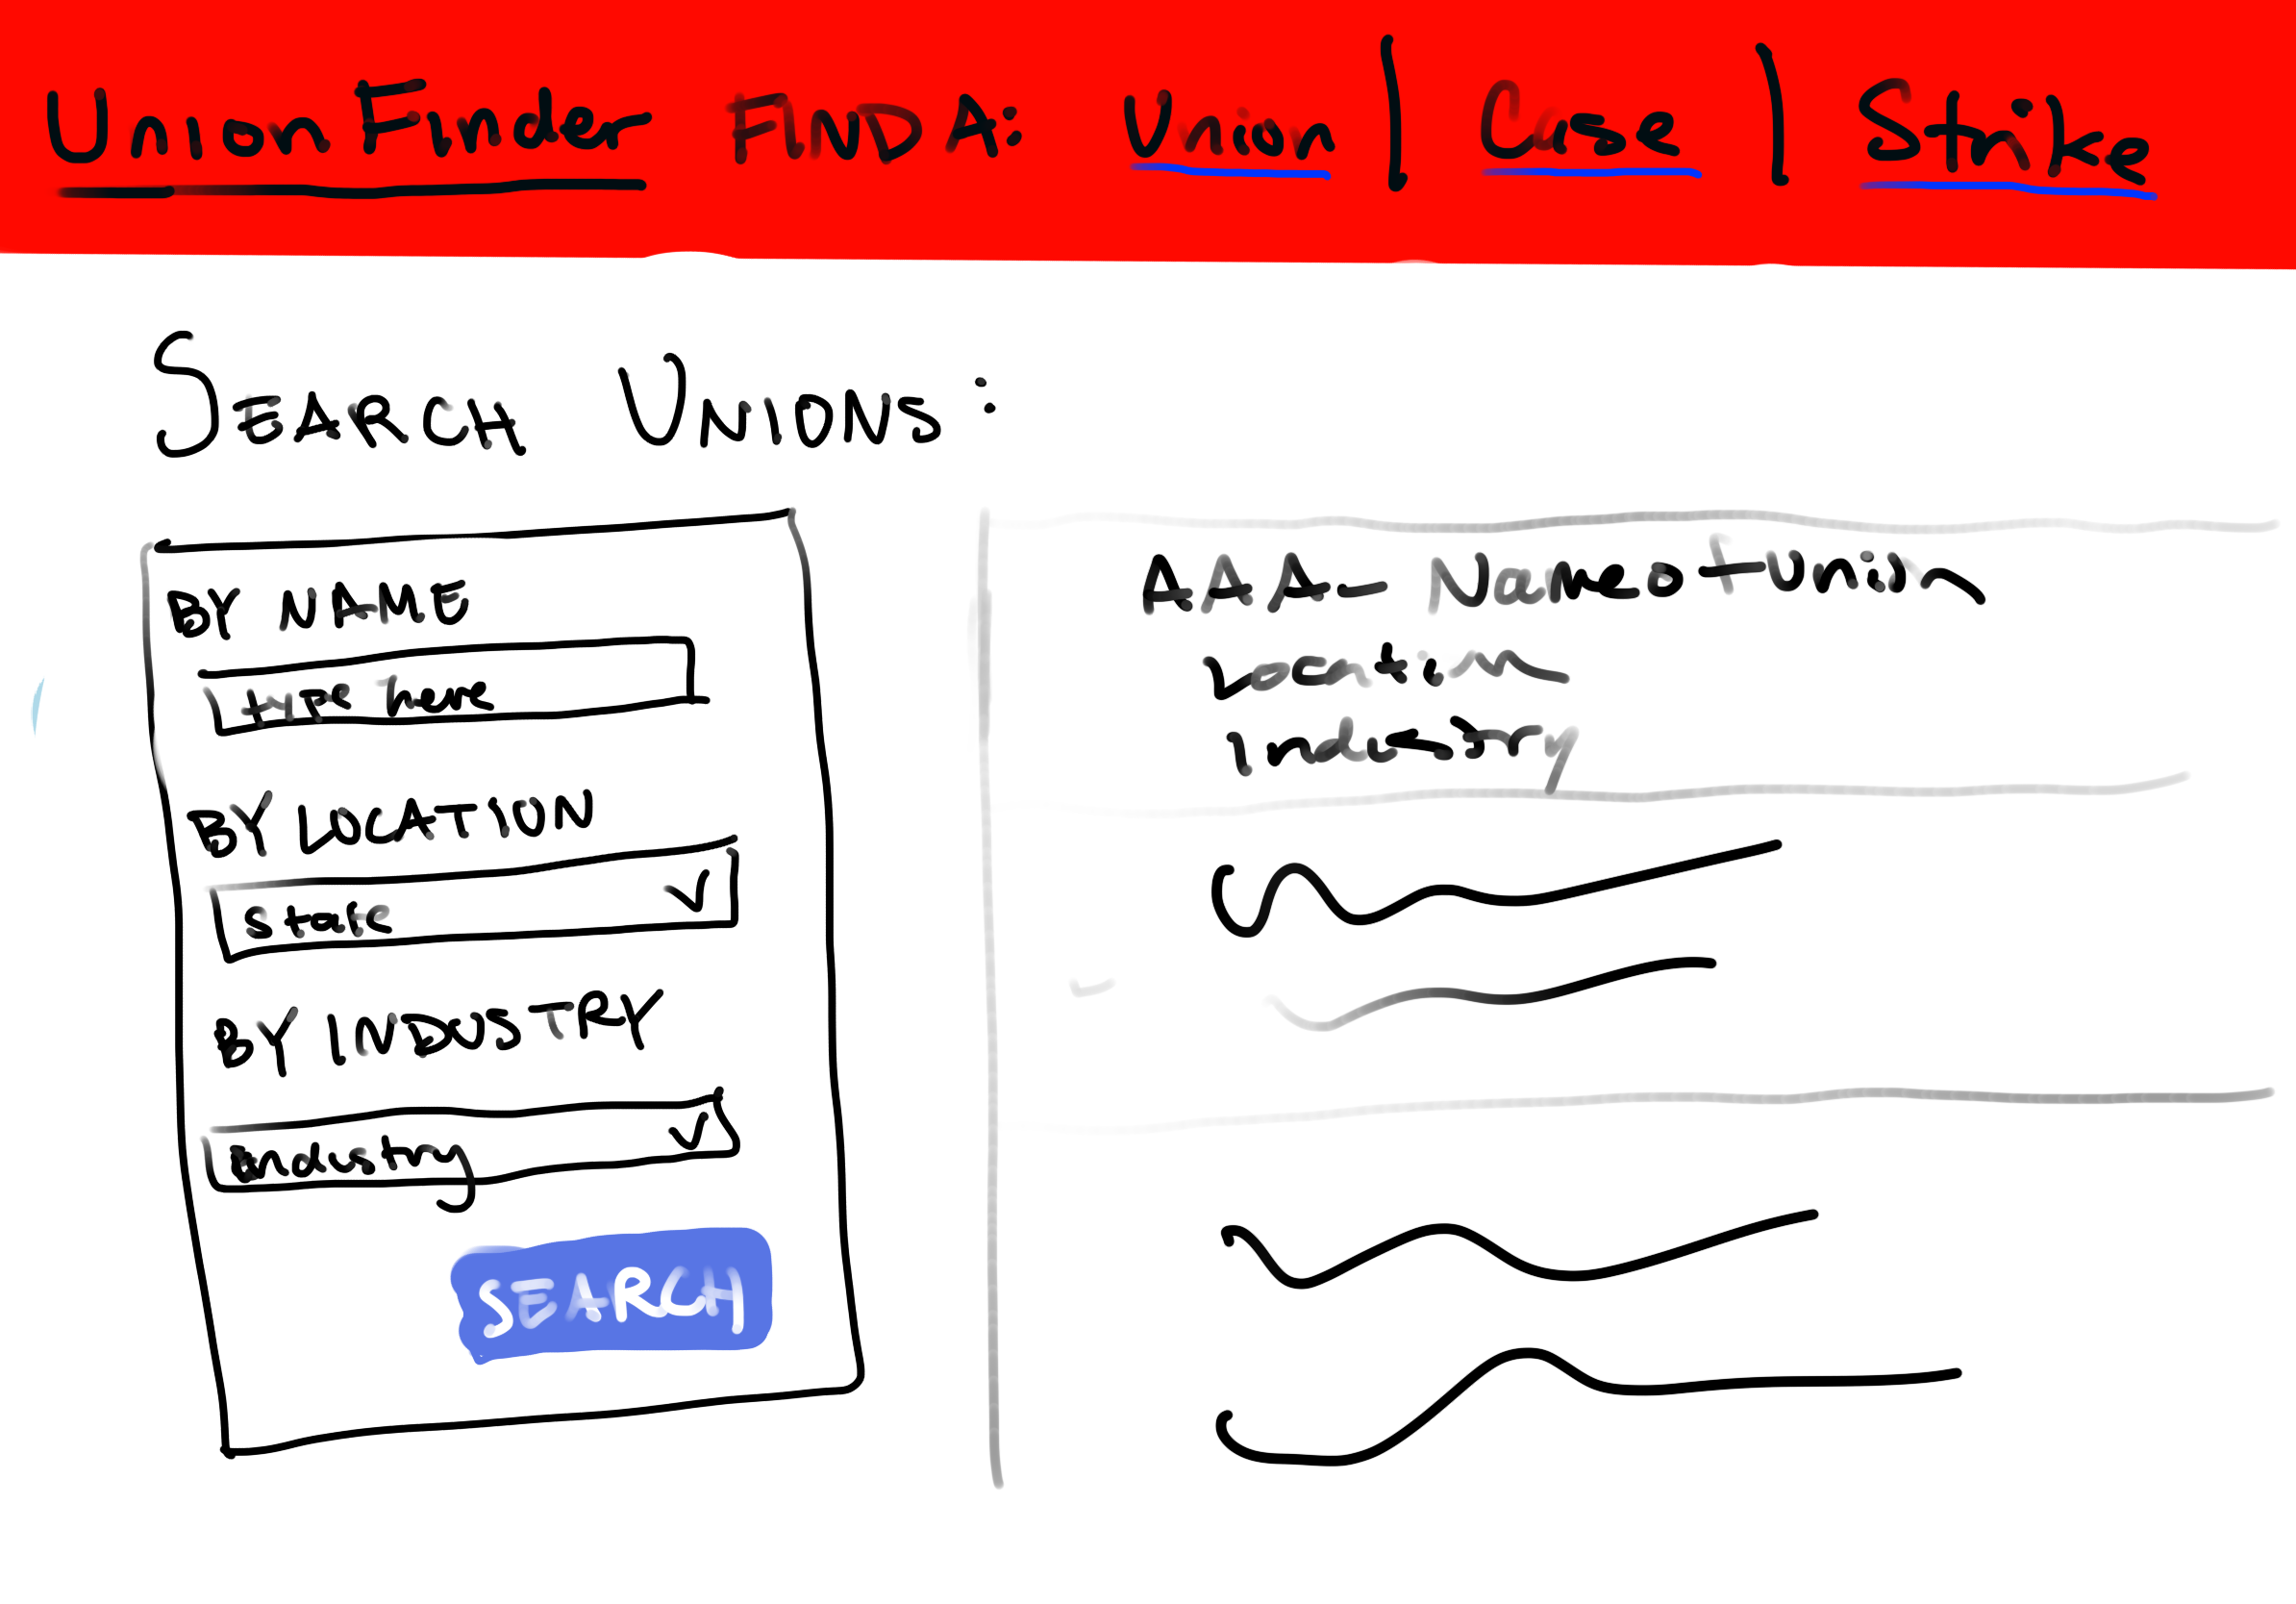 UnionFinder FIND A: Union | Case | Strike
SEARCH UNIONS:
BY NAME
type here
BY LOCATION
State
BY INDUSTRY
industry
SEARCH
AAA - Name of Union
Location
Industry